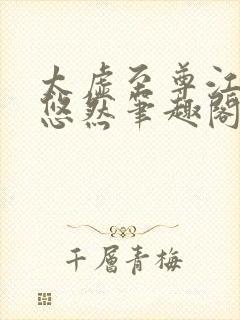 太虚至尊江
悠然笔趣阁
千層青梅